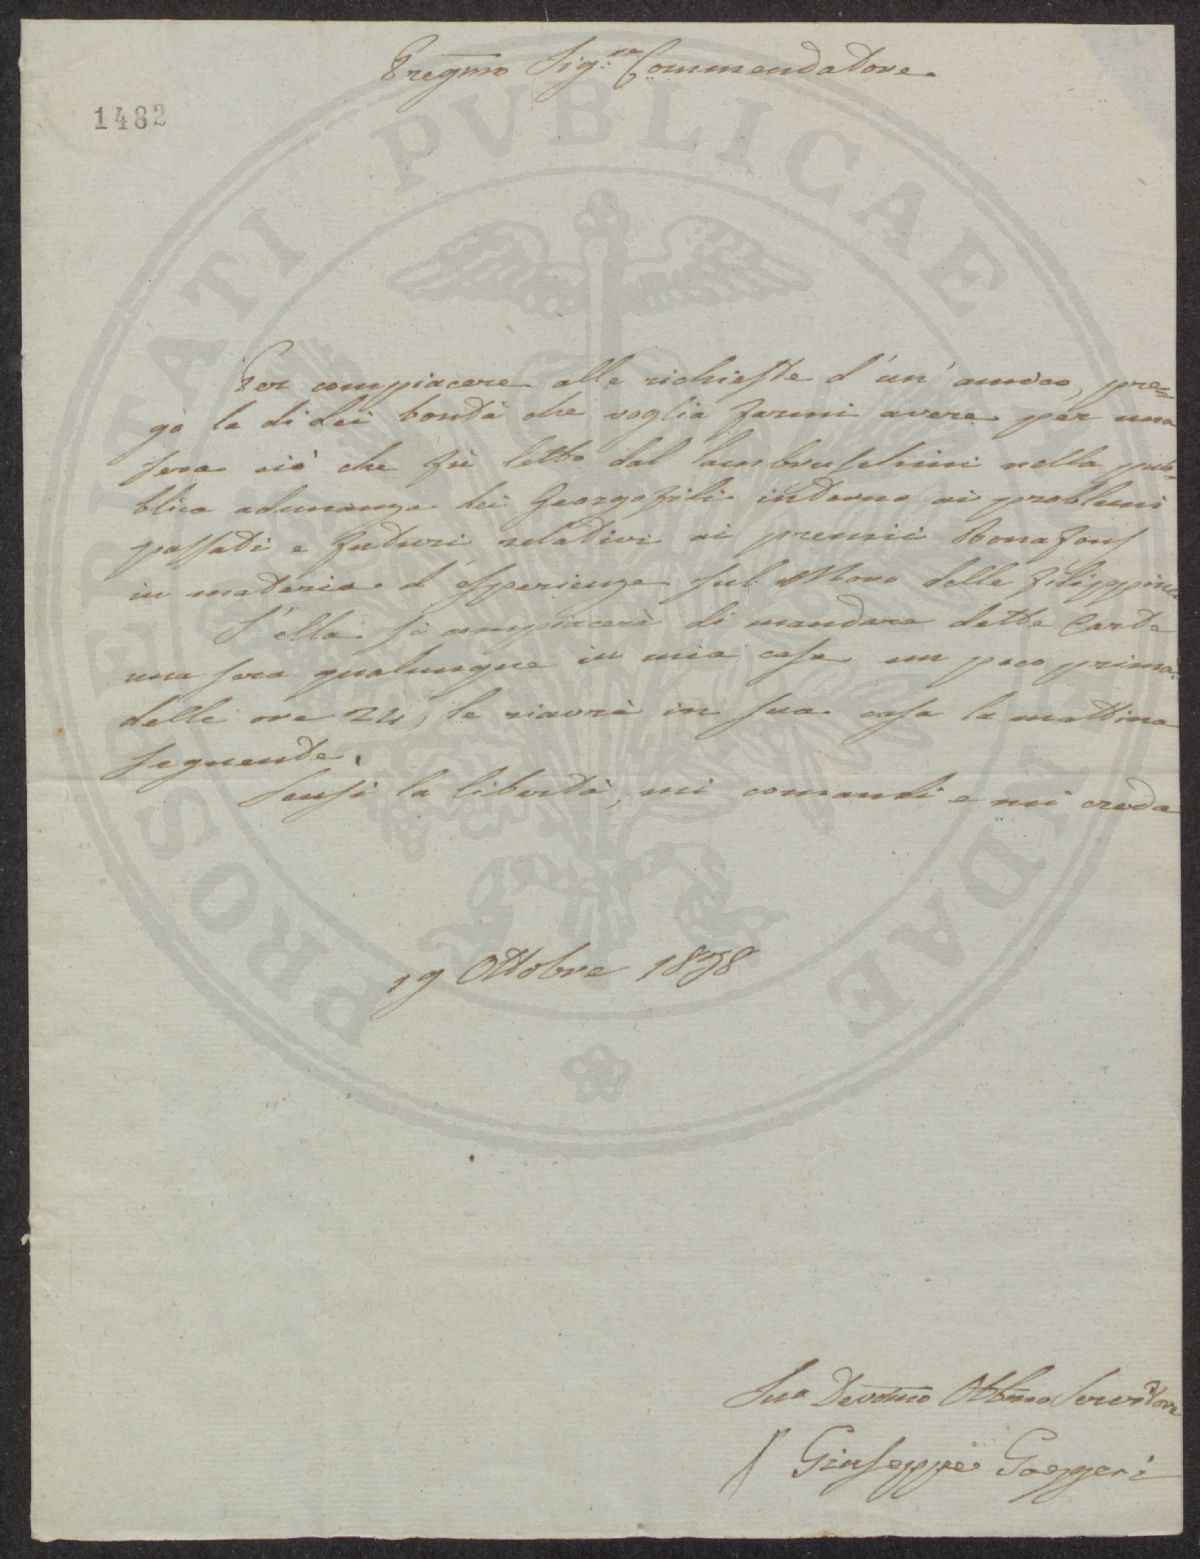 Pregmo Sig.re Commendatore.
1482
Per compiacere alle richieste d'un' amico, pre=
go la di Lei bontà che voglia farmi avere per una
sera ciò che fù letto dal Lambruschini nella pub=
blica adunanza dei Georgofili intorno ai problemi
passati e futuri relativi ai premii Bonafous
in materia d'esperienze sul Moro delle Filippine
S'ella si compiacerà di mandare dette Carte
una sera qualunque in mia casa un poco prima
delle ore 24, le riavrà in sua casa la mattina
seguente.
Scusi la libertà, mi comandi e mi creda
19 Ottobre 1838
Suo Devotmo Obbmo Servitore
Giuseppe Gazzeri
PROSPERITATI PVBLICAE AVGENDAE